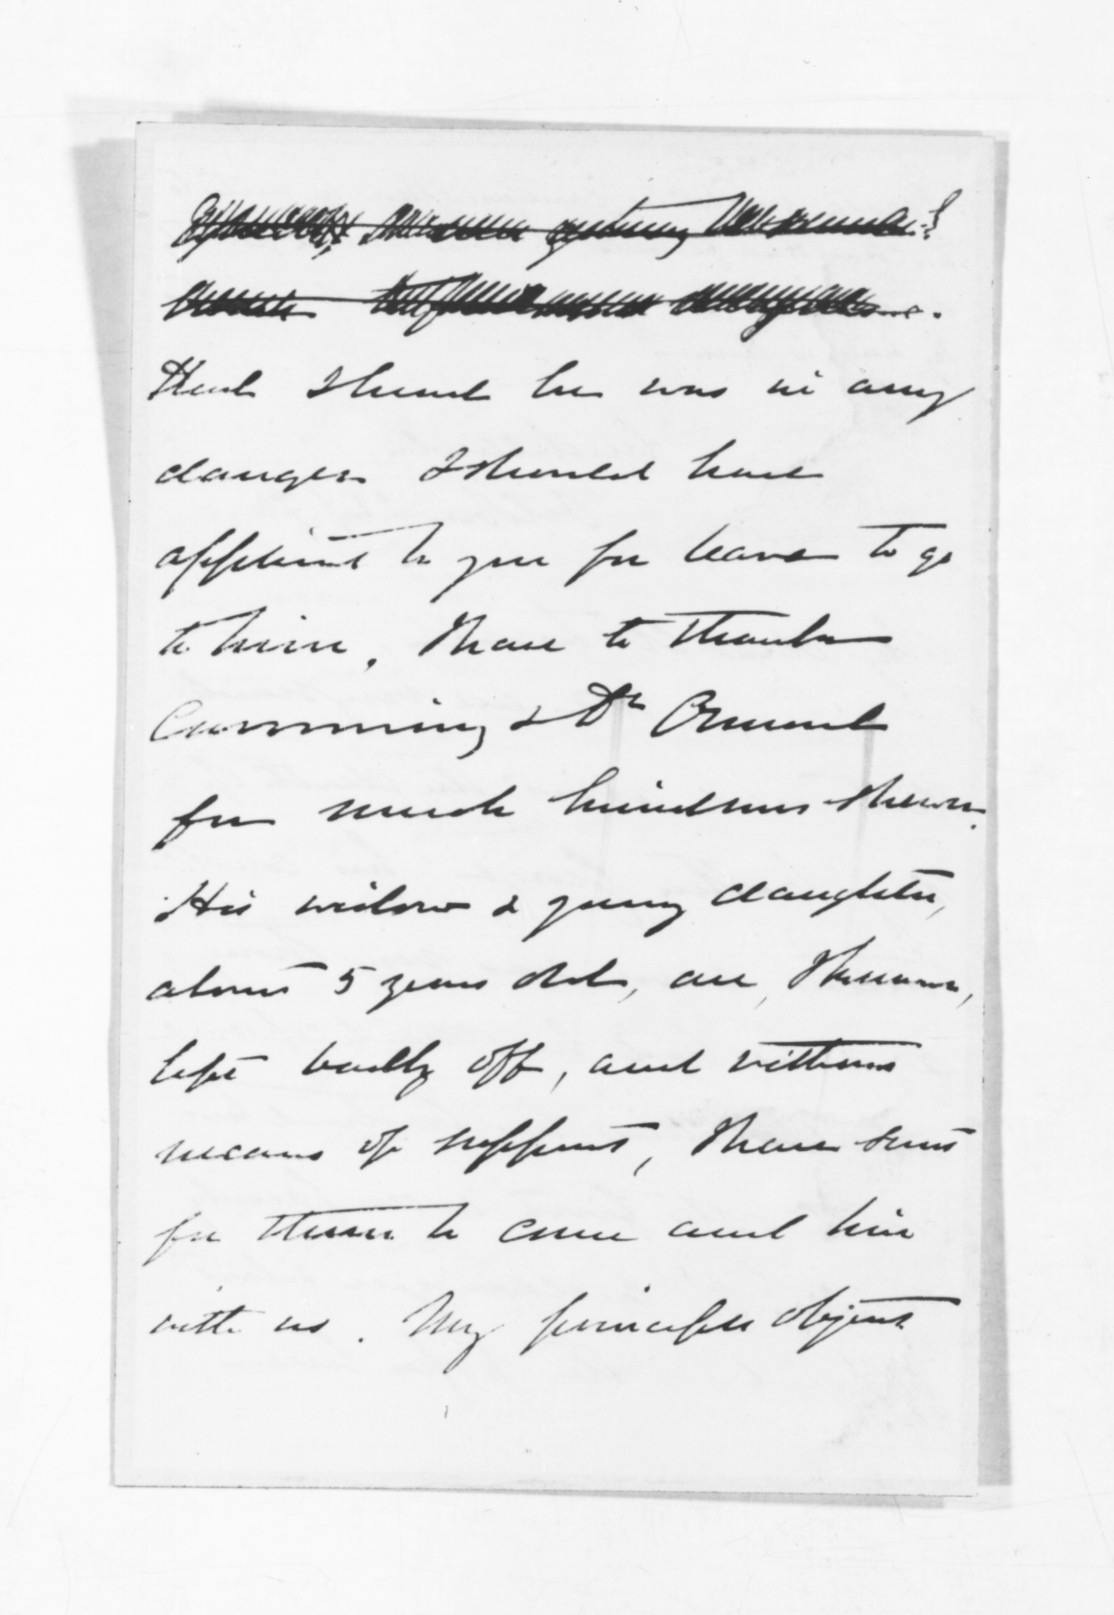 Had I heard he was in any
danger I should have
applied to you for leave to go
to him. I have to thank
Cumming & Dr Ormond
for much kindness shewn.
His widow & young daughter,
about 5 years old, are, I hear,
left badly off, and without
means of support, I have sent
for them to come and live
with us. My principle object